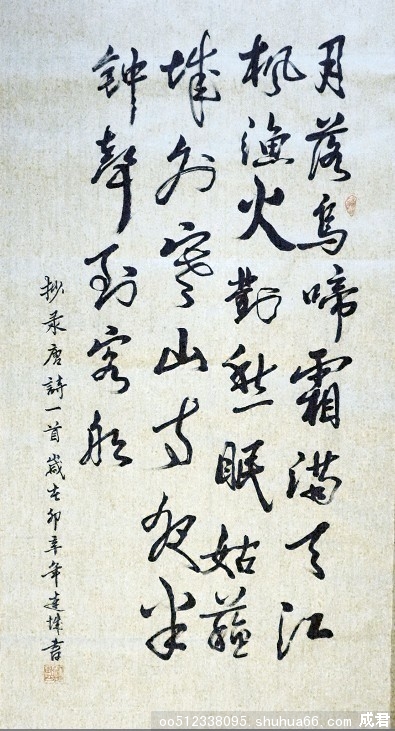 月落烏啼霜满天江
枫渔火對愁眠姑蘇
城外寒山寺夜半
钟聲到客船
抄录唐詩一首歲在卯辛年建城書
oo512338095. shuhua66. com 成君